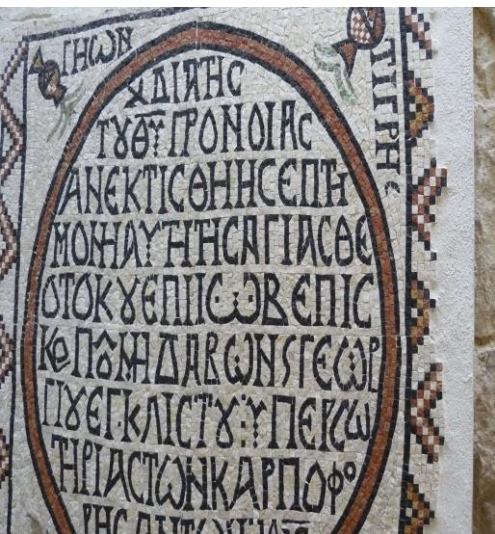 ΓΗΩΝ
ΤΙΓΡΗϹ
ΧΔΙΑΤΗϹ
ΤȢΘῩΠΡΟΝΟΙΑϹ
ΑΝΕΚΤΙϹΘΗΗϹΕΠΤΗ
ΜΟΝΗΑΥΤΗΤΗϹΑΓΙΑϹΘΕ
ΟΤΟΚȢΕΠΙΙΩΒΕΠΙϹ
ΚΟΠȢΜΗΔΑΒΩΝϚΓΕΩΡ
ΓΙȢΕΓΚΛΙϹΤȢΥΠΕΡϹΩ
ΤΗΡΙΑϹΤΩΝΚΑΡΠΟΦΟ
ΡΗϹΑΝΤΩΝ